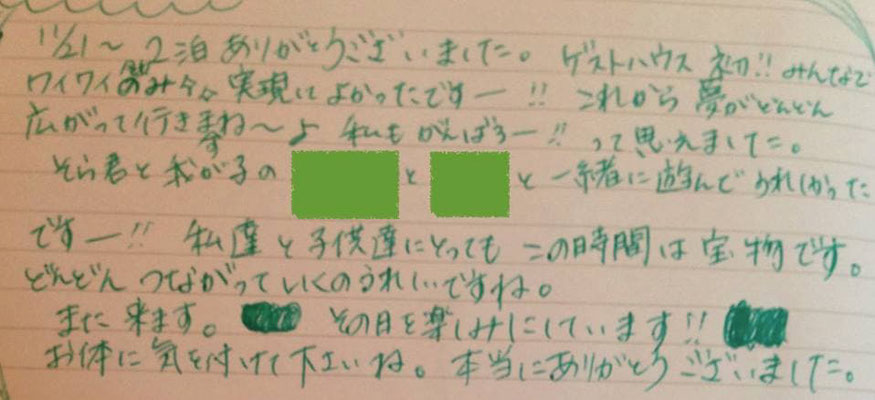 11/21～ 2泊 ありがとうございました。 ゲストハウス 初!! みんなで
ワイワイ 実現してよかったですー!! これから 夢がどんどん
広がって行きますね～♪ 私も がんばろー!! って思えました。
そら君と 我が子の と と 一緒に遊んで うれしかった
ですー!! 私達と子供達にとっても この時間は宝物です。
どんどん つながっていくのうれしいですね。
また 来ます。 その日を楽しみにしています!!
お体に気を付けて下さいね。本当にありがとうございました。